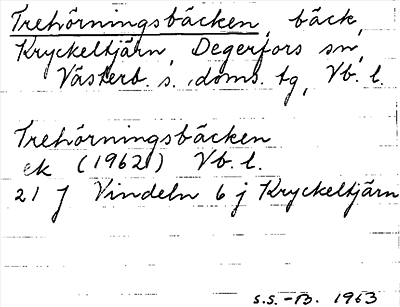 Trehörningsbäcken, bäck,
Kryckeltjärn, Degerfors sn,
Västerb. s. doms. tg, Vb. l.
Trehörningsbäcken
ek (1962) Vb. l.
21 J Vindeln 6 j Kryckeltjärn
S.S.-B. 1963